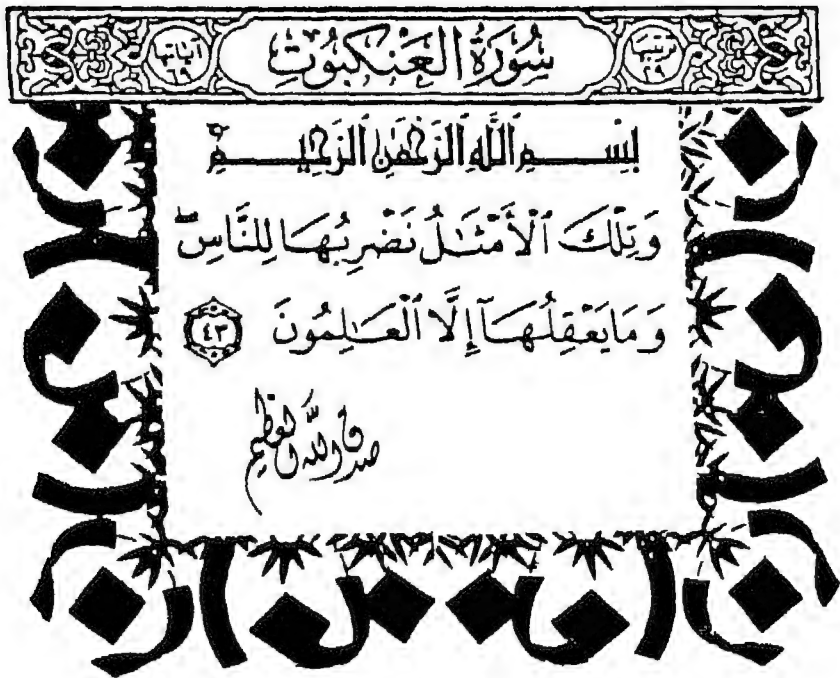 ترتيبها ٢٩
سُورَةُ الْعَنْكَبُوتِ
آياتها ٦٩
بِسْمِ ٱللَّهِ ٱلرَّحْمَٰنِ ٱلرَّحِيمِ
وَتِلْكَ ٱلْأَمْثَٰلُ نَضْرِبُهَا لِلنَّاسِۖ
وَمَا يَعْقِلُهَآ إِلَّا ٱلْعَٰلِمُونَ ٤٣
صدق الله العظيم